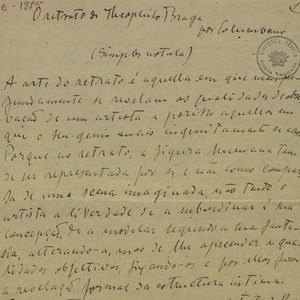 O retrato de Theophilo Braga
por Columbano
(Simples notula)
A arte do retrato é aquella em que mais pro-
fundamente se revelam as qualidades de obser-
vação de um artista e por isso aquella em
que o seu genio mais
Porque no retrato, a figura humana tem
de ser representada por si e não como compar-
sa de uma scena imaginada, não tendo o
artista a liberdade de a subordinar á sua
concepção, de a modelar segundo a sua fanta-
sia, alterando-a, mas de lhe apreender as qua-
lidades objectivas, fixando-as e por ellas fazer
a revelação formal da estructura intima.